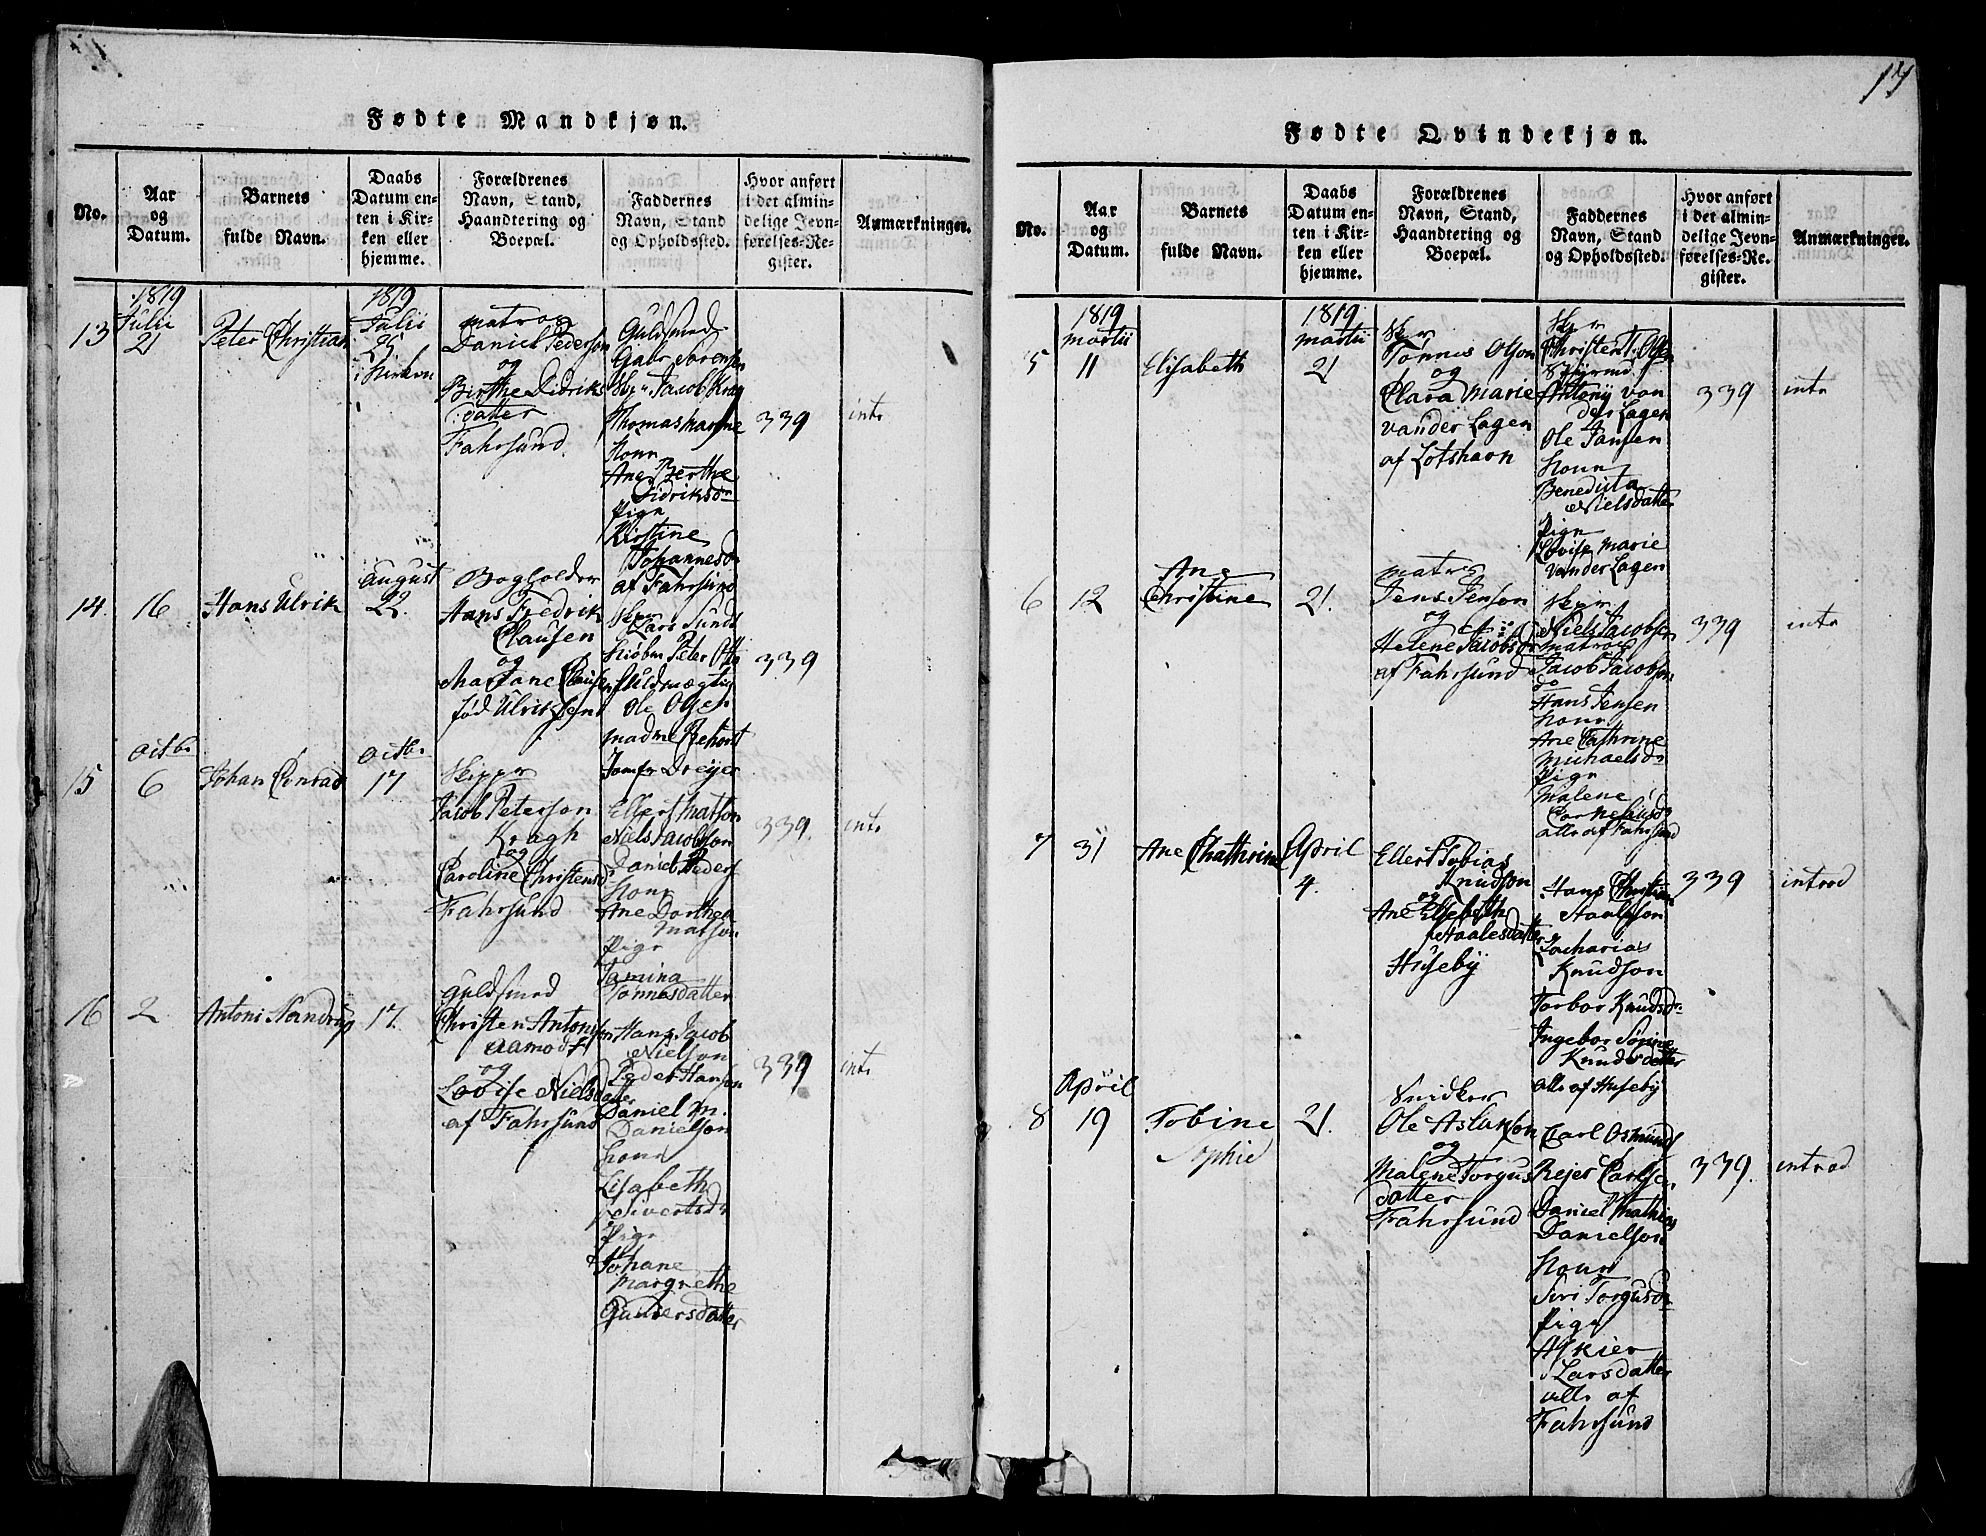 17
Fødte Mandkjøn.
No.
Aar
og
Datum.
Barnets
fulde Navn.
Daabs
Datum en-
ten i Kir-
ken eller
hjemme.
Forældrenes
Navn, Stand,
Haandtering og
Boepæl.
Faddernes
Navn, Stand
og Opholdssted.
Hvor anført
i det almin-
delige Jevn-
førelses-Re-
gister.
Anmærkninger.
13
1819
Julii
21
Peter Christian
1819
Julii
25
i Kirken
matros
Daniel Pederson
og
Birthe Didriks
datter
Fahrsund.
Guldsmed
Gabr Sørensen
Jacob Krag
Thomas
Konn
Ane Berthe
Didriksdr
Pign
Kirstine
Johannesdr
af Fahrsund
339
intr
14.
16
Hans Ulrik
August
22.
Bogholder
Hans Fredrik
Clausen
og
Mariane Clausen
fød Ulrikssen
Lars Sunds
Kiøbm Peter Otto
fuldmægtig
Ole Olsen
madme
Jomfr Dreyer
339
15
octbr
6
Johan Conrad
octbr
17
Skipper
Jacob Peterson
Kragh
og
Caroline Christensd
Fahrsund
Ellert Matson
Niels Jacobson
Daniel Peders
Konn
Ane Dorthea
Matson
Pign
Tamina
Tønnesdatter
339.
intr
16
2
Antoni Nandrup
17.
guldsmed
Christen Antonson
Aamodt
og
Lovise Niels
datter
af Fahrsund
Hans Jacob
Nielson
Peder Hanson
Daniel M.
Danielson
Konn
Lisabeth
Sivertsdr
Pign
Johane
Margrethe
Gundersdatter
339
intr
Fødte Qvindekjøn.
No.
Aar
og
Datum.
Barnets
fulde Navn.
Daabs
Datum en-
ten i Kir-
ken eller
hjemme.
Forældrenes
Navn, Stand,
Haandtering og
Boepæl.
Faddernes
Navn, Stand
og Opholdssted.
Hvor anført
i det almin-
delige Jevn-
førelses-Re-
gister.
Anmærkninger.
5
1819
martii
11
Elisabeth
1819
martii
21
Tønnes Olson
og
Clara Marie
vander Lagen
af Lotshavn
Christen T. Olsen
Styrmd
Antony van
der Lagen
Ole Jansen
Konn
Benedicta
Nielsdatter
Pign
Lovise Marie
vander Lagen
339
intr
6
12
Ane
Christine
21.
matros
Jens Jenson
og
Helene Jacobsdr
af Fahrsund
Niels Jacobsen
matros
Jacob Jacobson
do
Hans Jensen
Konn
Ane Cathrine
Michaelsdr
Pign
Malene
Corneliusdr
alle af Fahrsund
339
intr
7
31
Ane Chathrine
April
4.
Ellert Tobias
Knudson
og
Ane Elsebeth
Staalesdatter
Huseby
Hans Christian
Staalsson
Zacharias
Knudson
Torbor Knudsdr
Ingebor Sørine
Knudsdatter
alle af Huseby
339
introd
April
8
19
Tobine
Sophie
21.
Snidker
Ole Aslakson
og
Malene Torgus
datter
Fahrsund
Carl Osmunds
Rejer Carlsen
Daniel Mathias
Danielson
Konn
Siri Torgusdr
Pign
Askier
Larsdatter
alle af
Fahrsund
339.
introd